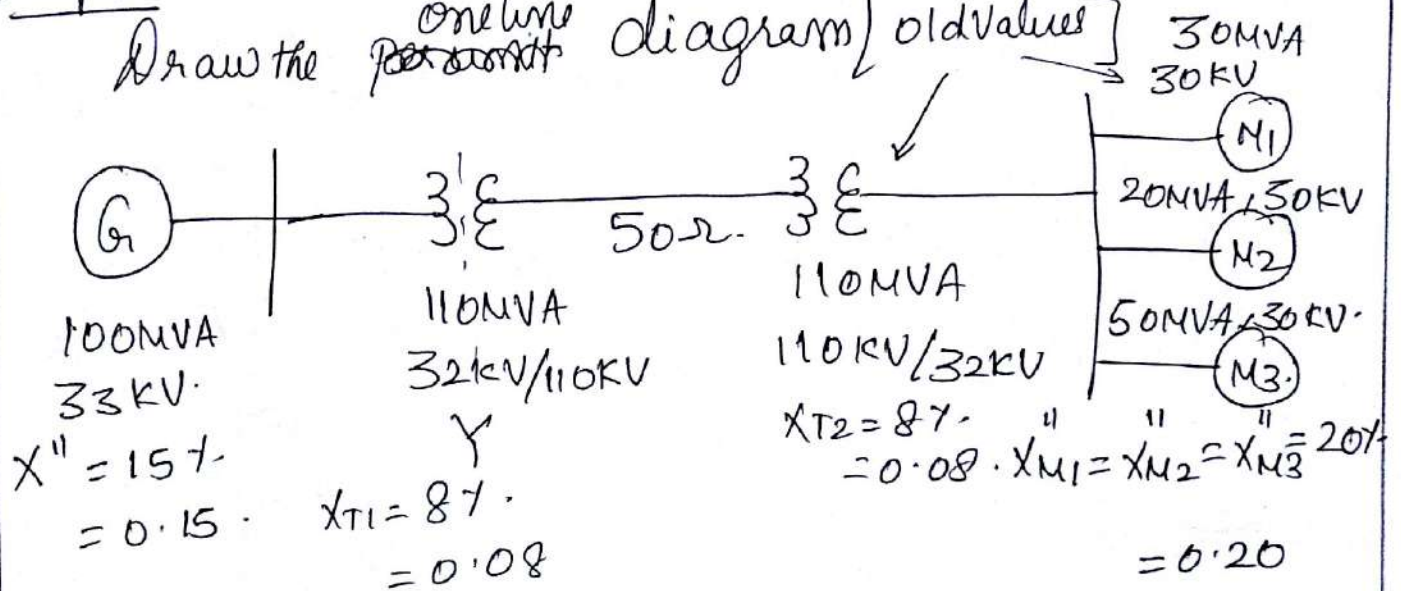 Draw the one line diagram [old values]
30MVA
30KV
M1
20MVA, 30KV
M2
50MVA, 30KV.
M3.
G
50Ω.
100MVA
33KV.
X" = 15%
= 0.15.
110MVA
32kV/110KV
Y
XT1 = 8%.
= 0.08
110MVA
110KV/32KV
XT2 = 8%.
= 0.08.
X"M1 = X"M2 = X"M3 = 20%
= 0.20